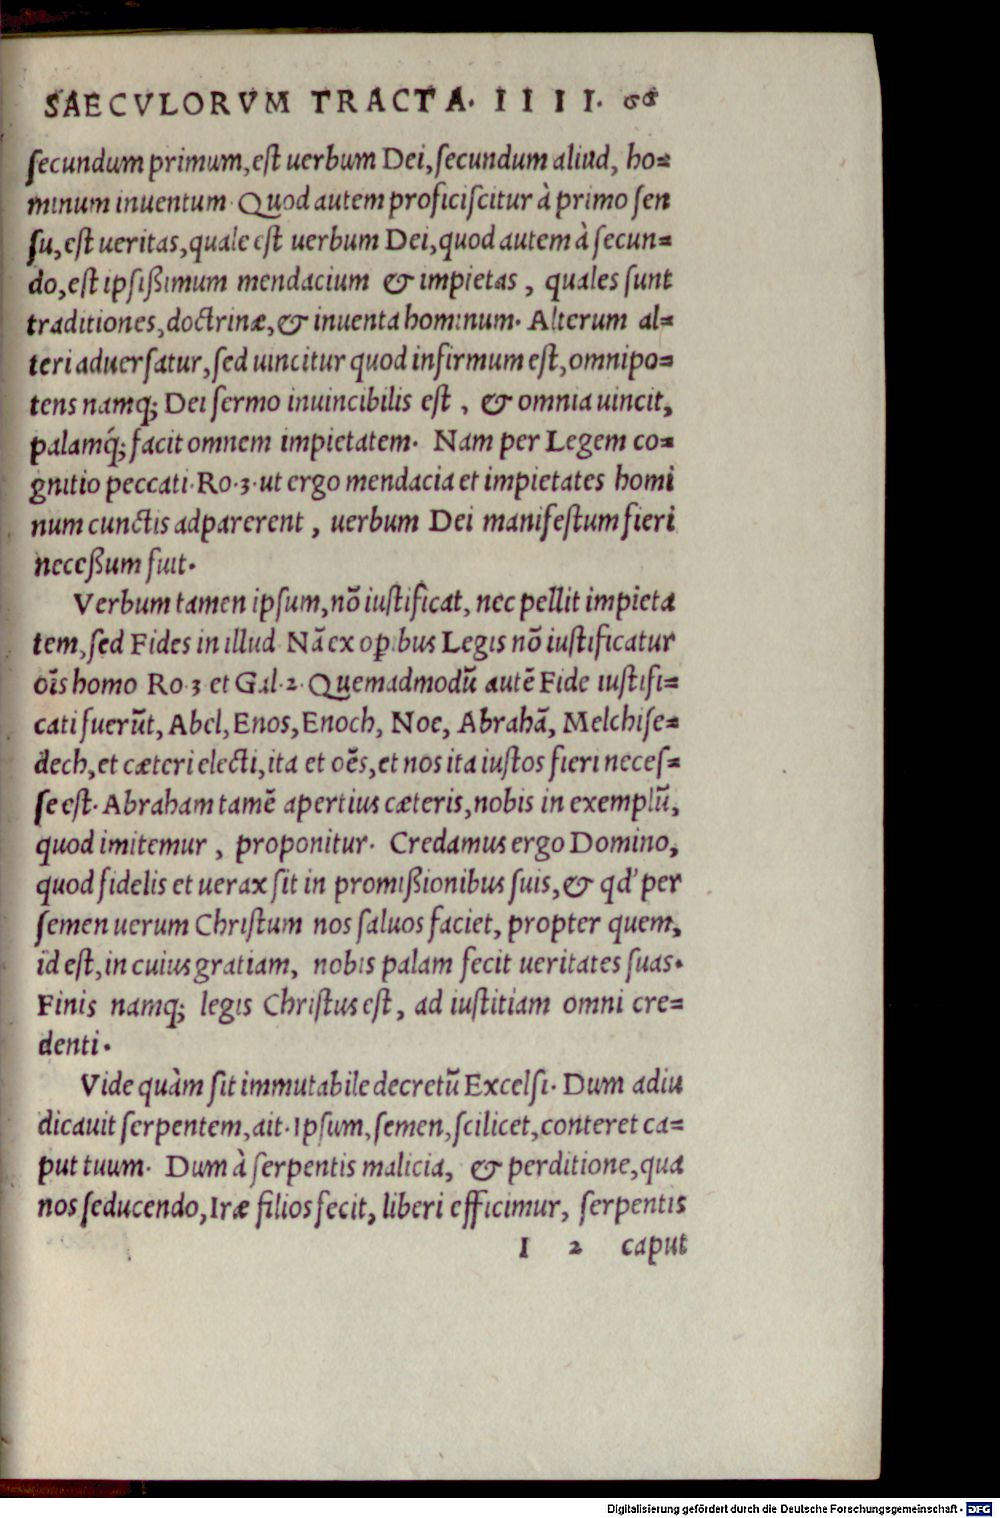 SAECVLORVM TRACTA. IIII.
secundum primum, est uerbum Dei, secundum aliud, ho=
minum inuentum. Quod autem proficiscitur à primo sen
su, est ueritas, quale est uerbum Dei, quod autem à secun=
do, est ipsißimum mendacium & impietas, quales sunt
traditiones, doctrinæ, & inuenta hominum. Alterum al=
teri aduersatur, sed uincitur quod infirmum est, omnipo=
tens namq; Dei sermo inuincibilis est, & omnia uincit,
palamq́; facit omnem impietatem. Nam per Legem co=
gnitio peccati. Ro.3. ut ergo mendacia et impietates homi
num cunctis adparerent, uerbum Dei manifestum fieri
neceßum fuit.
Verbum tamen ipsum, nõ iustificat, nec pellit impieta
tem, sed Fides in illud. Nã ex oꝑibus Legis nõ iustificatur
oīs homo Ro.3 et Gal.2. Quemadmodū autē Fide iustifi=
cati fuerūt, Abel, Enos, Enoch, Noe, Abrahā, Melchise=
dech, et cæteri electi, ita et oēs, et nos ita iustos fieri neces=
se est. Abraham tamē apertius cæteris, nobis in exemplū,
quod imitemur, proponitur. Credamus ergo Domino,
quod fidelis et uerax sit in promißionibus suis, & qd' per
semen uerum Christum nos saluos faciet, propter quem,
id est, in cuius gratiam, nobis palam fecit ueritates suas.
Finis namq; legis Christus est, ad iustitiam omni cre=
denti.
Vide quàm sit immutabile decretū Excelsi. Dum adiu
dicauit serpentem, ait. Ipsum, semen, scilicet, conteret ca=
put tuum. Dum à serpentis malicia, & perditione, qua
nos seducendo, Iræ filios fecit, liberi efficimur, serpentis
I 2 caput
Digitalisierung gefördert durch die Deutsche Forschungsgemeinschaft - DFG